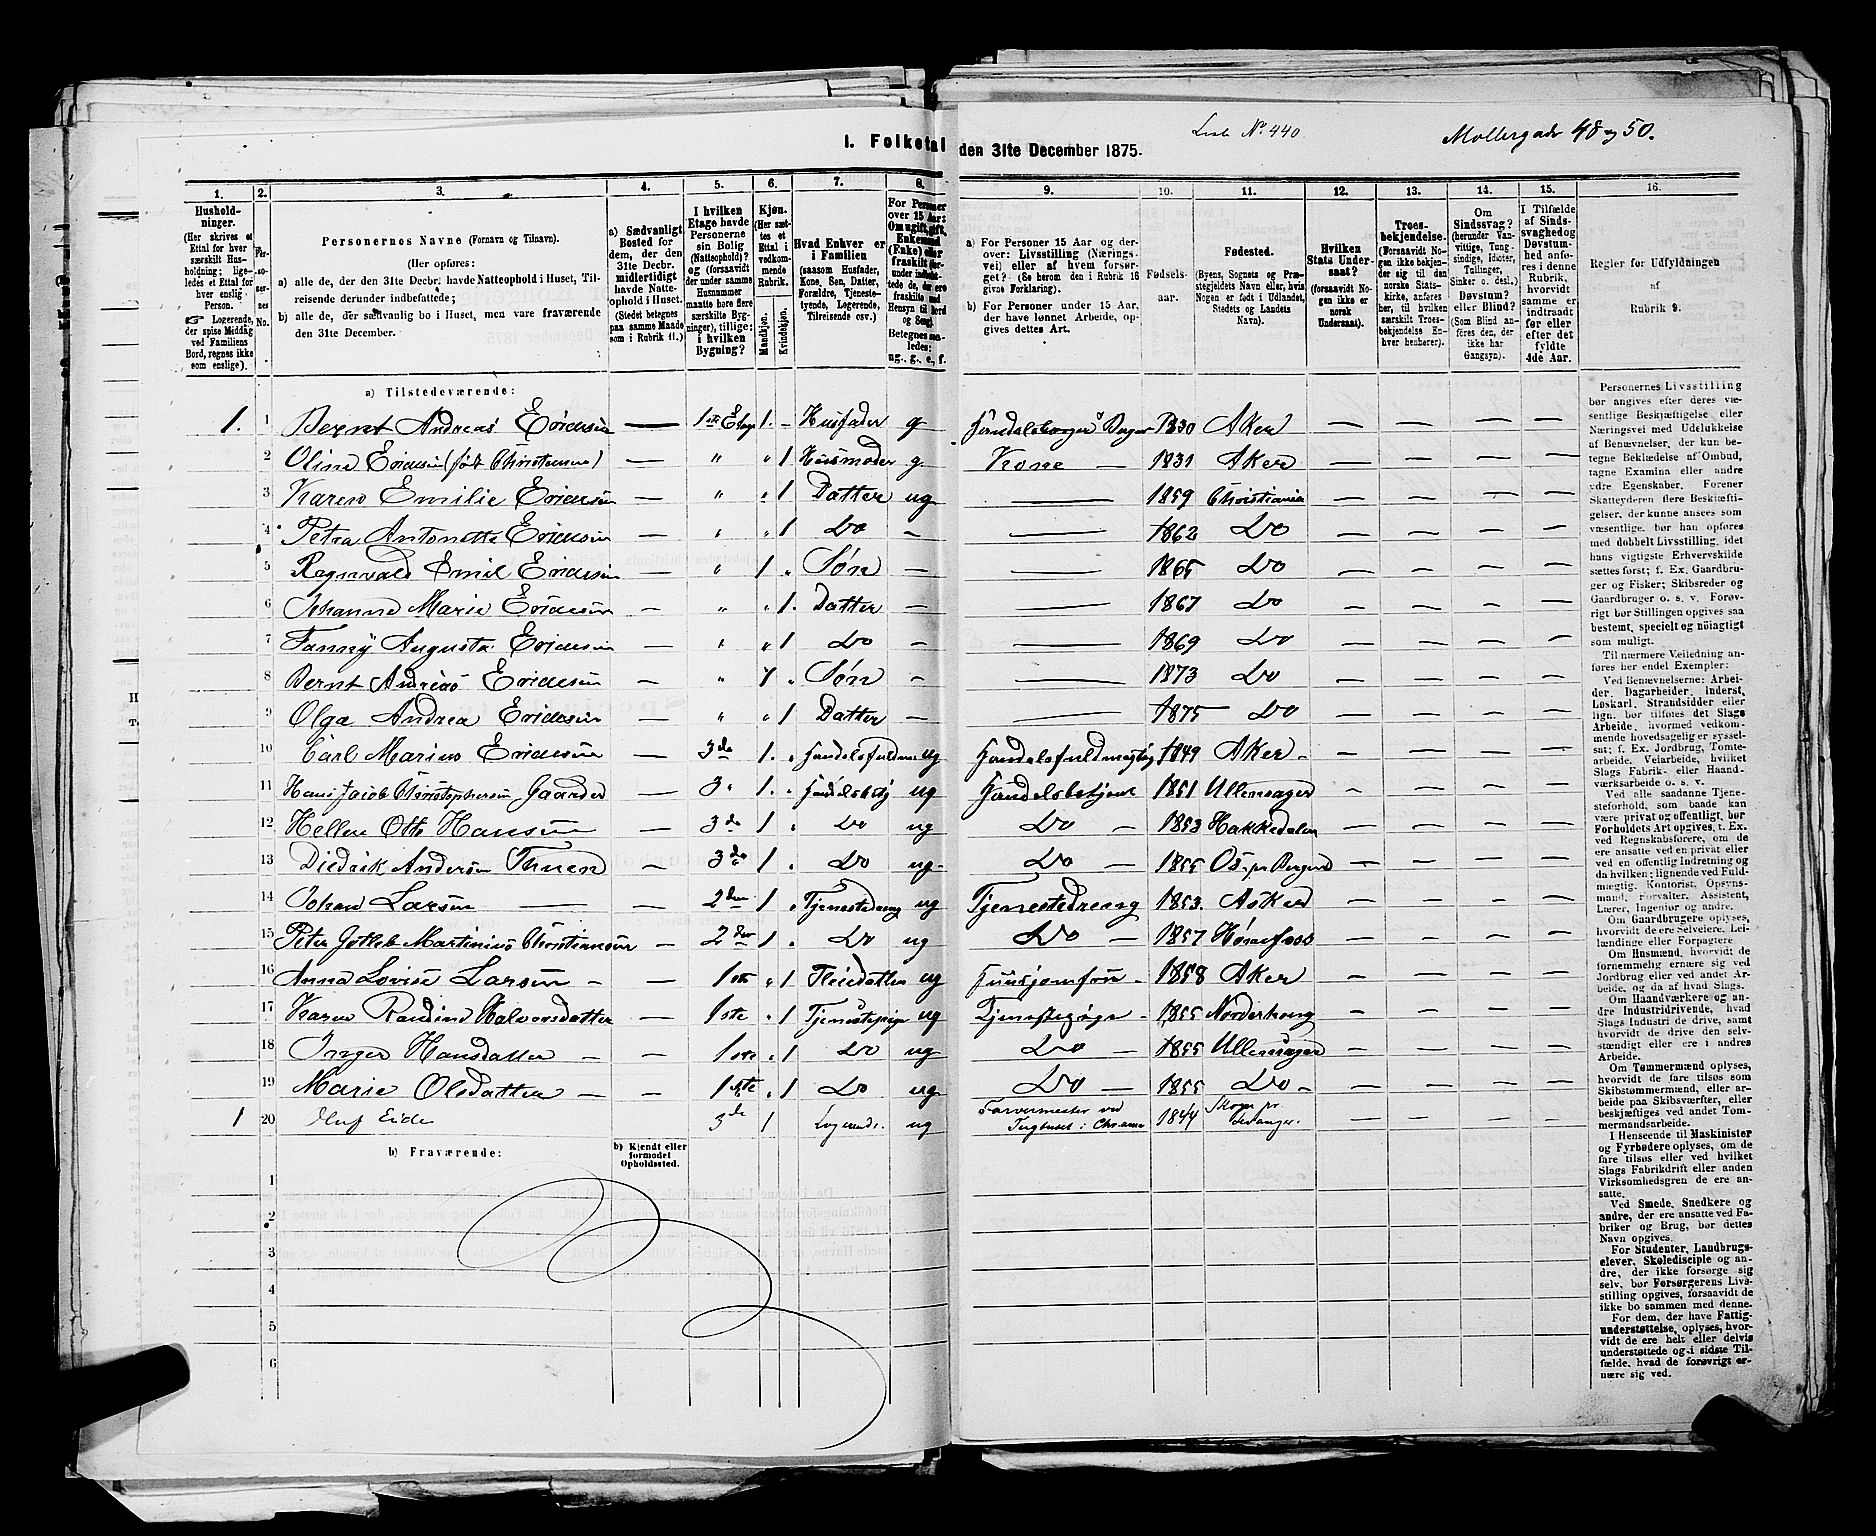 Liste No. 440.
Møllergade 48 og 50.
I. Folketal den 31te December 1875.
1. 2. 3. 4. 5. 6. 7. 8. 9. 10. 11. 12. 13. 14. 15. 16.
Husholdninger.
(Her skrives et Ettal for hver særskilt Husholdning; ligeledes et Ettal for hver enslig Person.
☞ Logerende, der spise Middag ved Familiens Bord, regnes ikke som enslige).
Personernes No.
Personernes Navne (Fornavn og Tilnavn).
(Her opføres:
a) alle de, der den 31te Decbr. havde Natteophold i Huset, Tilreisende derunder indbefattede;
b) alle de, der sædvanlig bo i Huset, men vare fraværende den 31te December.
a) Sædvanligt Bosted for dem, der den 31te Decbr. midlertidigt havde Natteophold i Huset. (Stedet betegnes paa samme Maade som i Rubrik 11.)
I hvilken Etage havde Personerne sin Bolig (Natteophold)? og (forsaavidt der under samme Husnummer maatte høre flere særskilte Bygninger), tillige: i hvilken Bygning?
Kjøn. (Her sættes et Ettal i vedkommende Rubrik.
Mandkjøn. Kvindekjøn.
Hvad Enhver er i Familien (saasom Husfader, Kone, Søn, Datter, Forældre, Tjenestetyende, Logerende, Tilreisende osv.)
For Personer over 15 Aar: Om ugift, gift, Enkemand (Enke) eller fraskilt
Betegnes saaledes: ug., g., e., f.
a) For Personer 15 Aar og derover: Livsstilling (Næringsvei) eller af hvem forsørget? (Se herom den i Rubrik 16 givne Forklaring).
b) For Personer under 15 Aar, der have lønnet Arbeide, opgives dettes Art.
Fødselsaar.
Fødested. (Byens, Sognets og Præstegjeldets Navn eller, hvis Nogen er født i Udlandet, Stedets og Landets Navn).
Hvilken Stats Undersaat? (forsaavidt Nogen ikke er norsk Undersaat).
Troesbekjendelse. (Forsaavidt Nogen ikke bekjender sig til den norske Statskirke, anføres her, til hvilken særskilt Troesbekjendelse Enhver henhører).
Om Sindssvag? (herunder Vanvittige, Tungsindige, Idioter, Tullinger, Sinker o. desl.). Døvstum? eller Blind? (Som Blind anføres den, der ikke har Gangsyn).
I Tilfælde af Sindssvaghed og Døvstumhed anføres i denne Rubrik, hvorvidt samme er indtraadt før eller efter det fyldte 4de Aar.
Regler for Udfyldningen af Rubrik 9.
a) Tilstedeværende:
1. 1 Bernt Andreas Ericksen — 1ste Etage 1. - Husfader g Handelsborger Bager 1830 Aker — — — —
2 Oline Ericksen (født Christensen) — " " 1 Husmoder g. Kone — 1831 Aker — — — —
3 Karen Emilie Ericksen — " " 1 Datter ug — 1859 Christiania — — — —
4 Petra Antonette Ericksen — " " 1 Do — — 1862 Do — — — —
5 Ragnvald Emil Ericksen — " 1 " Søn — — 1865 Do — — — —
6 Johanne Marie Ericksen — " " 1. Datter — — 1867 Do — — — —
7 Fanny Augusta Ericksen — " " 1 Do — — 1869 Do — — — —
8 Bernt Andreas Ericksen — " 1 " Søn — — 1873 Do — — — —
9 Olga Andrea Ericksen — " " 1 Datter — — 1875 Do — — — —
10 Carl Marius Ericksen — 3de 1. " ug Handelsfuldmægtig 1849 Aker - — — — —
11 Hans Jacob Christophersen — 3 " 1. " Handelsbetj ug Handelsbetjent 1851 Ullensager — — — —
12 Hellen Otto Hansen — 3de 1 " Do ug Do 1853 Hakkedalen — — — —
13 Diedrik Andersen Thuen — 3de 1 " Do ug Do — 1855 Os pr Bergen — — — —
14 Johan Larsen — — 2den 1 " Tjenestedreng ug Tjenestedreng 1853. Asker — — — —
15 Peter Gotleb Martinius Christiansen — 2den 1 " Do ug Do — 1857 Hønefoss — — — —
16 Anna Lovise Larsen — — 1ste " 1 Pleiedatter ug 1858 Aker — — — —
17 Karen Randine Halvorsdatter — 1ste " 1 Tjenestepige ug Tjenestepige - 1855 Norderhoug — — — —
18 Inger Hansdatter — — 1ste " 1 Do ug Do — 1855 Ullensager — — — —
19 Marie Olsdatter — — 1ste " 1 Do ug Do — 1855 Do - — — — —
1 20 Oluf Eide 3de 1 Logerende. ug Farvermester ved Tugthuset i Chr.ania 1844 pr. Levanger. — — — —
b) Fraværende:
b) Kjendt eller formodet Opholdssted.
1
2
3
4
5
6
Personernes Livsstilling bør angives efter deres væsentlige Beskjæftigelse eller Næringsvei med Udelukkelse af Benævnelser, der kun betegne Beklædelse af Ombud, tagne Examina eller andre ydre Egenskaber. Forener Skatteyderen flere Beskjæftigelser, der kunne ansees som væsentlige, bør han opføres med dobbelt Livsstilling, idet hans vigtigste Erhvervskilde sættes først; f. Ex. Gaardbruger og Fisker; Skibsreder og Gaardbruger o. s. v. Forøvrigt bør Stillingen opgives saa bestemt, specielt og nøiagtigt som muligt.
Til nærmere Veiledning anføres her endel Exempler:
Ved Benævnelserne: Arbeider, Dagarbeider, Inderst, Løskarl, Strandsidder eller lign. bør tilføies det Slags Arbeide, hvormed vedkommende hovedsagelig er sysselsat; f. Ex. Jordbrug, Tomtearbeide, Veiarbeide, hvilket Slags Fabrik- eller Haandværksarbeide o. s. v.
Ved alle saadanne Tjenesteforhold, som baade kan være privat og offentligt, bør Forholdets Art opgives, t. Ex. ved Regnskabsførere, om de ere ansatte ved en privat eller ved en offentlig Indretning og da hvilken; lignende ved Fuldmægtig, Kontorist, Opsynsmand, Forvalter, Assistent, Lærer, Ingeniør og andre.
Om Gaardbrugere oplyses, hvorvidt de ere Selveiere, Leilændinge eller Forpagtere
Om Husmænd, hvorvidt de fornemmelig ernære sig ved Jordbrug eller ved andet Arbeide, og da af hvad Slags.
Om Haandværkere og andre Industridrivende, hvad Slags Industri de drive, samt hvorvidt de drive den selvstændigt eller ere i andres Arbeide.
Om Tømmermænd oplyses, hvorvidt de fare tilsøs som Skibstømmermænd, eller arbeide paa Skibsværfter, eller beskjæftiges ved andet Tømmermandsarbeide.
I Henseende til Maskinister og Fyrbødere oplyses, om de fare tilsøs eller ved hvilket Slags Fabrikdrift eller anden Virksomhedsgren de ere ansatte.
Ved Smede, Snedkere og andre, der ere ansatte ved Fabriker og Brug, bør dettes Navn opgives.
For Studenter, Landbrugselever, Skoledisciple og andre, der ikke forsørge sig selv, bør Forsørgerens Livsstilling opgives, forsaavidt de ikke bo sammen med denne.
For dem, der have Fattigunderstøttelse, oplyses, hvorvidt de ere helt eller delvis understøttede og i sidste Tilfælde, hvad de forøvrigt ernære sig ved.